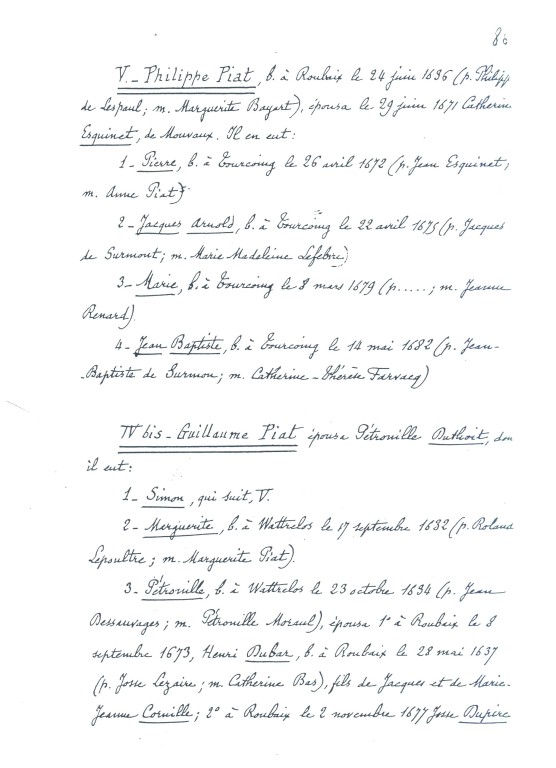 86
V._ Philippe Piat, b. à Roubaix le 24 juin 1636 (p. Philipp
de Lespaul; m. Marguerite Bayart), épousa le 29 juin 1671 Catherin
Esquinet, de Mouvaux. Il en eut:
1_ Pierre, b. à Tourcoing le 26 avril 1672 (p. Jean Esquinet;
m. Anne Piat)
2_ Jacques Arnold, b. à Tourcoing le 22 avril 1675 (p. Jacques
de Surmont; m. Marie Madeleine Lefebvre)
3_ Marie, b. à Tourcoing le 8 mars 1679 (p.....; m. Jeanne
Renard).
4_ Jean Baptiste, b. à Tourcoing le 14 mai 1682 (p. Jean-
-Baptiste de Surmon; m. Catherine-Thérèse Farvacq)
IV bis - Guillaume Piat épousa Pétronille Duthoit, don
il eut:
1_ Simon, qui suit, V.
2_ Marguerite, b. à Wattrelos le 17 septembre 1632 (p. Roland
Lepoultre; m. Marguerite Piat).
3_ Pétronille, b. à Wattrelos le 23 octobre 1634 (p. Jean
Dessauvages; m. Pétronille Moraul), épousa 1° à Roubaix le 8
septembre 1673, Henri Dubar, b. à Roubaix le 28 mai 1637
(p. Josse Lezaire; m. Catherine Bas), fils de Jacques et de Marie-
Jeanne Cornille; 2° à Roubaix le 2 novembre 1677 Josse Dupire